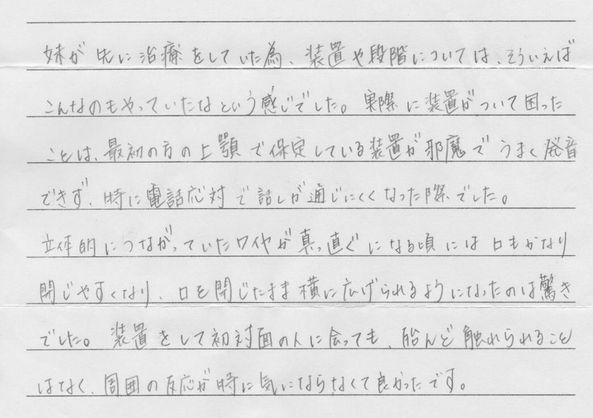 妹が先に治療をしていた為、装置や段階については、そういえば
こんなのもやっていたなという感じでした。実際に装置がついて困った
ことは、最初の方の上顎で保定している装置が邪魔でうまく発音
できず、時に電話応対で話しが通じにくくなった際でした。
立体的につながっていたワイヤが真っ直ぐになる頃には口もかなり
閉じやすくなり、口を閉じたまま横に広げられるようになったのは驚き
でした。装置をして初対面の人に会っても、殆んど触れられること
はなく、周囲の反応が時に気にならなくて良かったです。